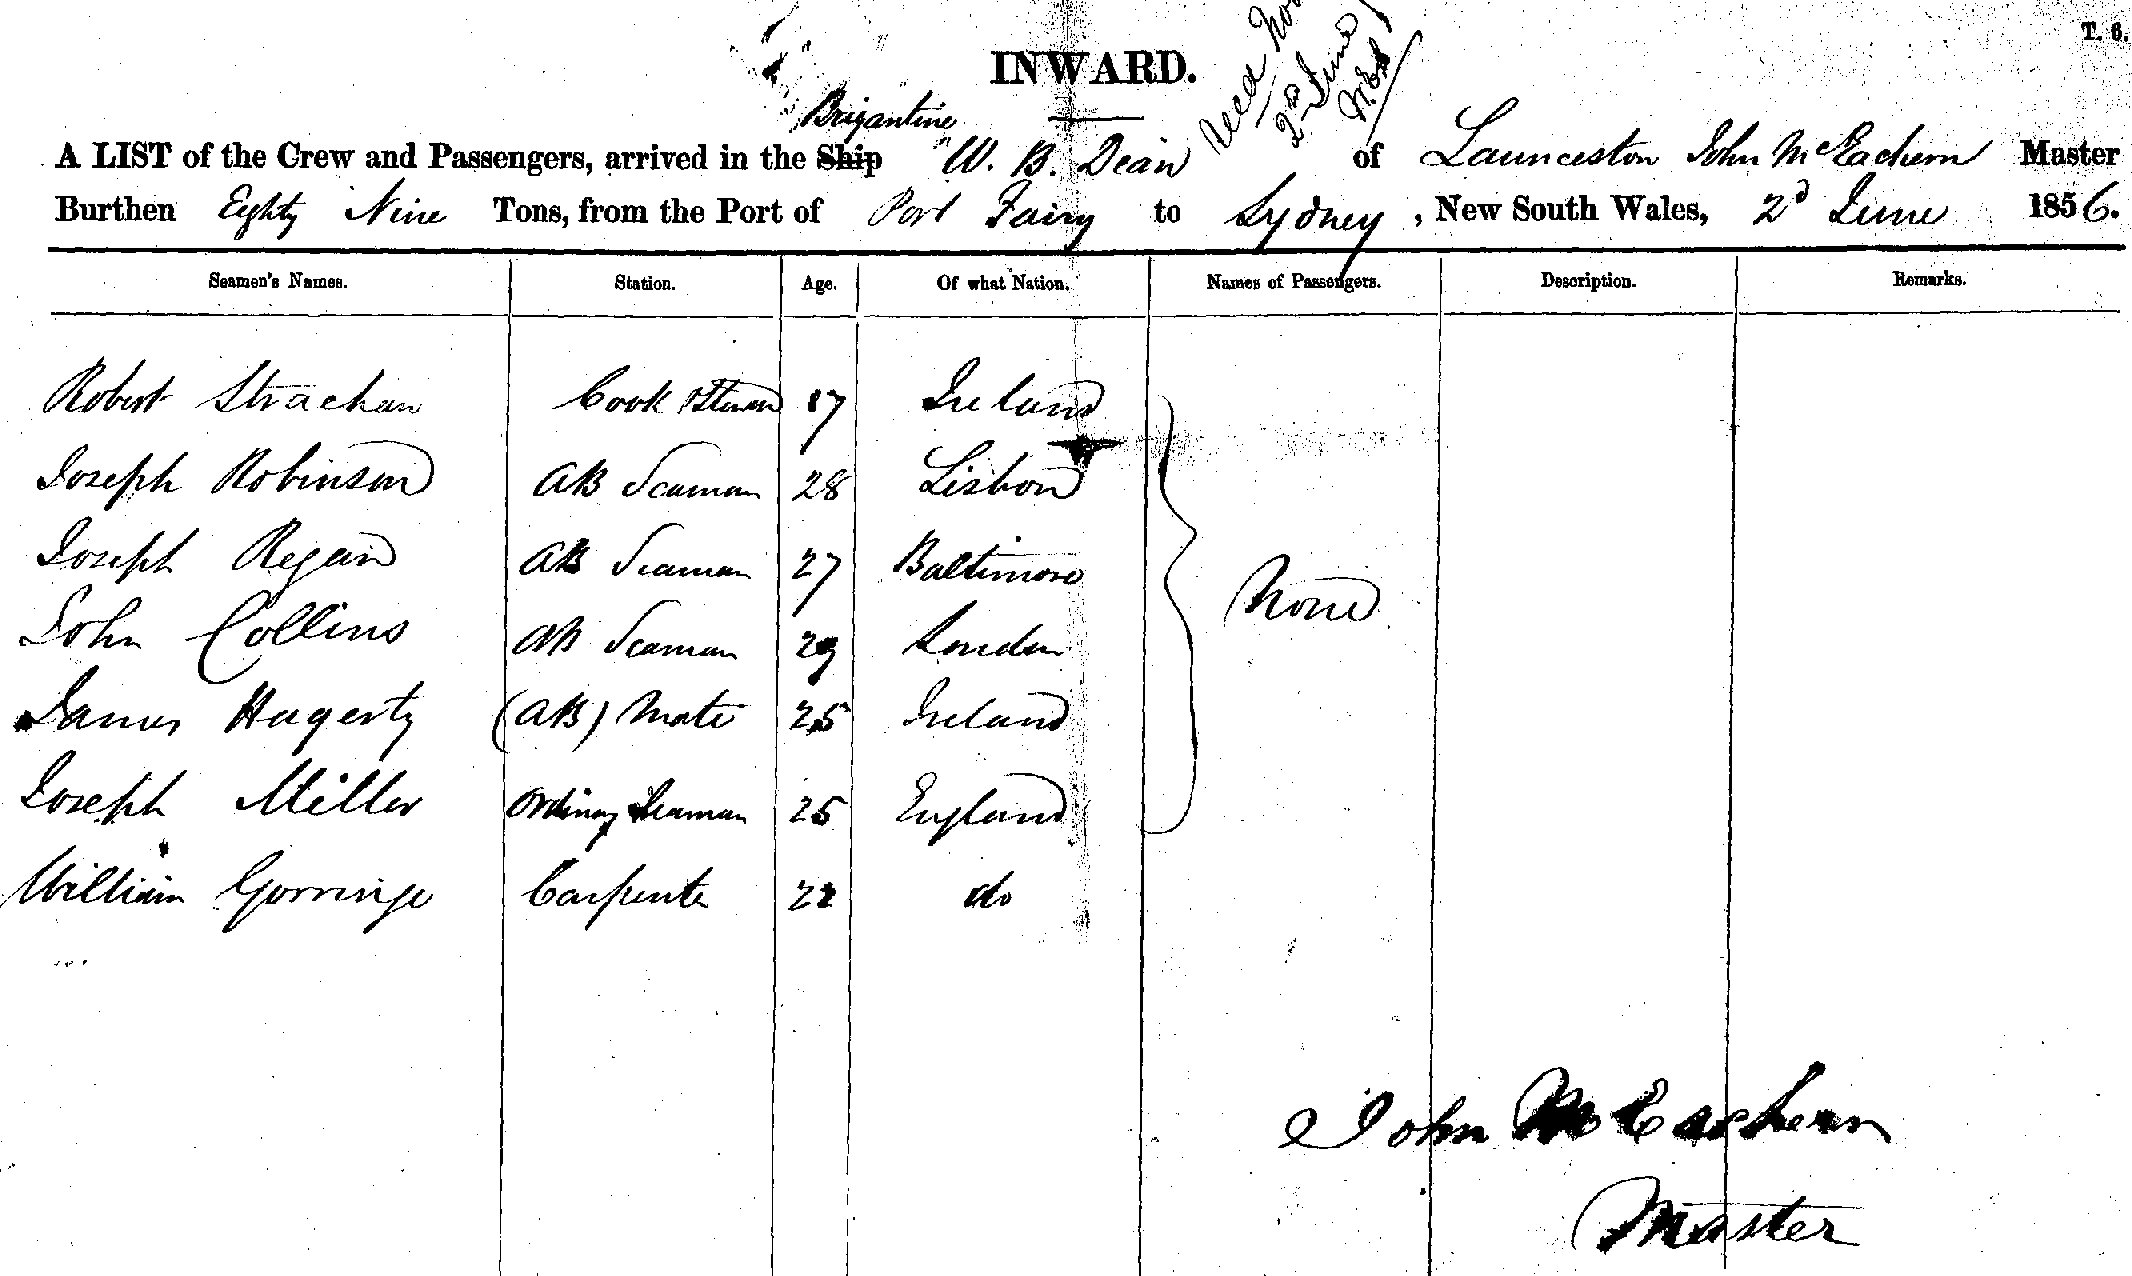 T. 6.
INWARD.
Recd
2nd June
Brigantine
A LIST of the Crew and Passengers, arrived in the Ship W. B. Dean of Launceston John McEachern Master
Burthen Eighty Nine Tons, from the Port of Port Fairy to Sydney, New South Wales, 2d June 1856.
Seamen's Names. Station. Age. Of what Nation. Names of Passengers. Description. Remarks.
Robert Strachan Cook & Steward 17 Ireland
Joseph Robinson AB Seaman 28 Lisbon
Joseph Regan AB Seaman 27 Baltimore
None
John Collins AB Seaman 29 London
James Hagerty (AB) Mate 25 Ireland
Joseph Miller Ordinary Seaman 25 England
William Gorringe Carpenter 22 do
John McEachern
Master